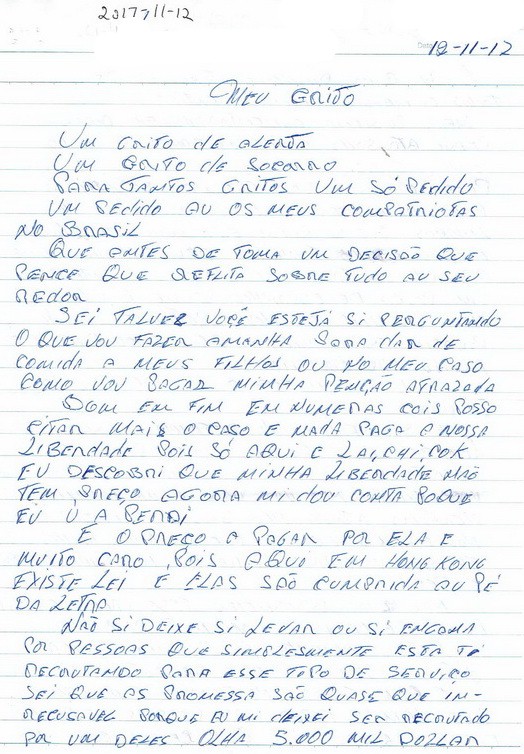 2017-11-12
12-11-17
MEU GRITO
UM GRITO de ALERTA
UM GRITO de SOCORRO
PARA TANTOS GRITOS UM SÓ PEDIDO
UM PEDIDO AU OS MEUS COMPATRIOTAS
NO BRASIL
QUE ANTES DE TOMA UM DECISÃO QUE
PENCE QUE REFLITA SOBRE TUDO AU SEU
REDOR
SEI TALVEZ VOÇÊ ESTEJÁ SI PERGUNTANDO
O QUE VOU FAZER AMANHA PARA DAR DE
COMIDA A MEUS FILHOS OU NO MEU CASO
COMO VOU PAGAR MINHA PENÇÃO ATRAZADA
BOM EM FIM EM NUMERAS COIS POSSO
CITAR MAIS O CASO E NADA PAGA A NOSSA
LIBERDADE POIS SÓ AQUI E LAI,CHI,COK
EU DESCOBRI QUE MINHA LIBERDADE NÃO
TEM PREÇO AGORA MI DOU CONTA POQUE
EU Ü A PERDI
E O PREÇO A PAGAR POR ELA E
MUITO CARO, POIS AQUI EM HONG KONG
EXISTE LEI E ELAS SÃO CUMPRIDA AU PÉ
DA LETRA
NÃO SI DEIXE SI LEVAR OU SI ENGANA
POR PESSOAS QUE SIMPLESMENTE ESTA TI
RECRUTANDO PARA ESSE TIPO DE SERVIÇO
SEI QUE AS PROMESSA SÃO QUASE QUE IN-
RECUSAVEL PORQUE EU MI DEIXEI SER RECRUTADO
POR UM DELES OLHA 5.000 MIL DOLLAR